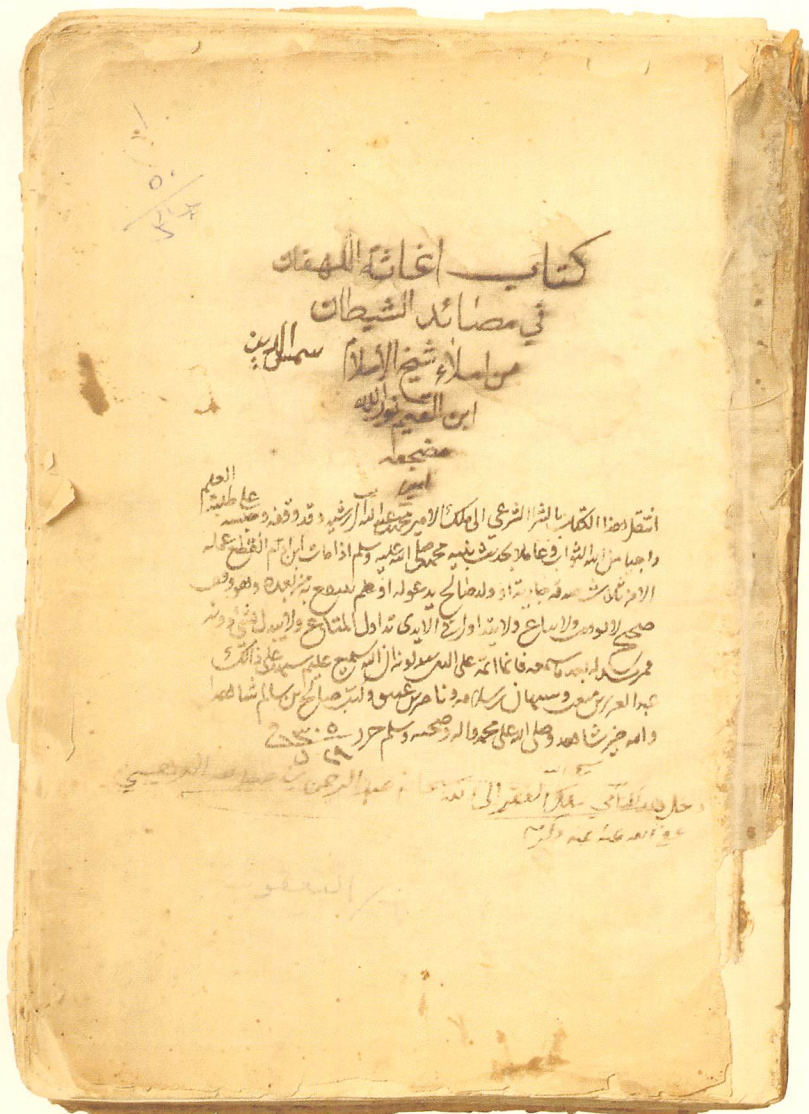 كتاب اغاثة اللهفان
في مصائد الشيطان
من املاء شيخ الأسلام شمس الدين
ابن القيم نور الله
مضجعه
امين
انتقل هذا الكتاب بالشراء الشرعي الى ملك الامير محمد بن عبدالله آل رشيد وقد وقفه وحبسه على طلبة العلم
راجيا من الله الثواب وعاملا بحديث نبيه محمد صلى الله عليه وسلم اذا مات ابن ادم انقطع عمله
الا من ثلاث صدقه جارية او ولد صالح يدعو له او علم ينتفع به من بعده وهو وقف
صحيح لا يوهب ولا يباع ولا يتداول في الايدي تداول المتاع
فمن بدله بعد ما سمعه فانما اثمه على الذين يبدلونه ان الله سميع عليم شهد على ذالك
عبد العزيز بن وسليمان بن سلامه وناصر بن عتيق وكتب صالح بن سالم شاهدا
والله خير شاهد وصلى الله على محمد واله وصحبه وسلم حرر
دخل هذا الكتاب بملك الفقير الى الله عبد الرحمن
عفى الله عنه